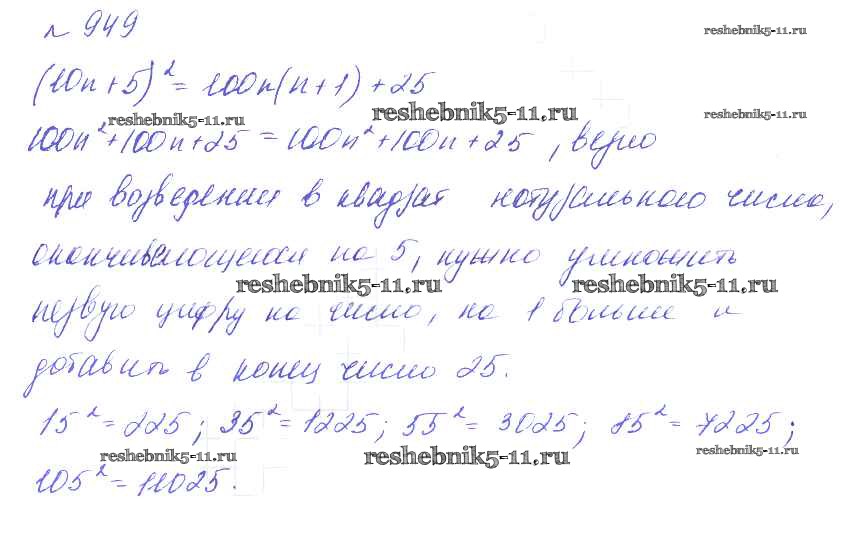 № 949
reshebnik5-11.ru
(10n + 5)² = 100n(n + 1) + 25
reshebnik5-11.ru reshebnik5-11.ru reshebnik5-11.ru
100n² + 100n + 25 = 100n² + 100n + 25, верно
при возведении в квадрат натурального числа,
оканчивающегося на 5, нужно умножить
reshebnik5-11.ru reshebnik5-11.ru
первую цифру на число, на 1 больше и
добавить в конец число 25.
15² = 225; 35² = 1225; 55² = 3025; 85² = 7225;
reshebnik5-11.ru reshebnik5-11.ru reshebnik5-11.ru
105² = 11025.